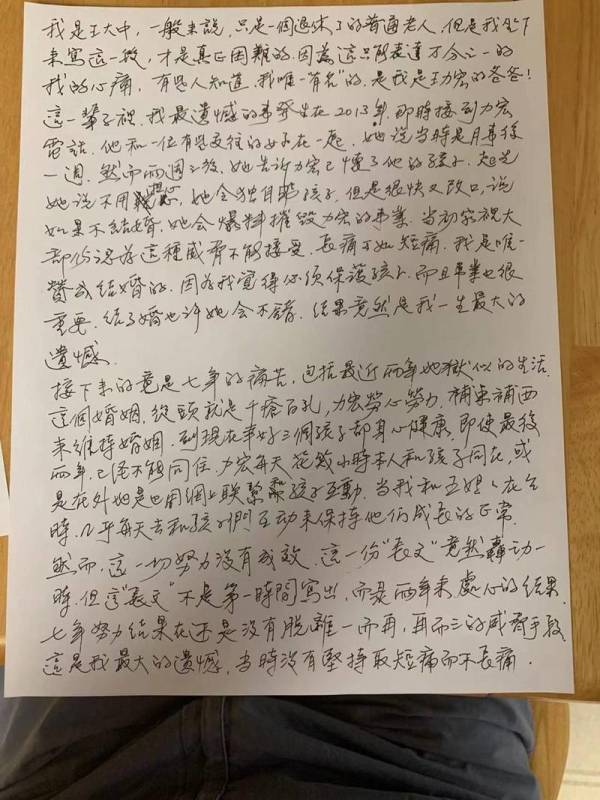 我是王大中，一般來說，只是一個退休了的普通老人，但是我坐下
來寫這一段，才是真正困難的，因為這只能表達万分之一的
我的心痛，有些人知道，我唯一有名"的，是我是王力宏的爸爸！
這一輩子裡，我最遺憾的事發生在2013年，那時接到力宏
電話，他和一位有些交往的女子在一起，她說當時是月事後
一週，然而兩週之後，她告訴力宏已懷了他的孩子，起先
她說不用擔心，她會獨自養孩子，但是很快又改口，說
如果不結婚，她會爆料摧毀力宏的事業，當初家裡大
部份認為這種威脅不能接受，長痛不如短痛，我是唯一
贊成結婚的，因為我覺得必須保護孩子，而且事業也很
重要，結了婚也許她會不錯，結果竟然是我一生最大的
遺憾．
接下來的竟是七年的痛苦，包括最近兩年地獄似的生活，
這個婚姻，從頭就是千瘡百孔，力宏勞心勞力，補東補西
來維持婚姻，到現在幸好三個孩子都身心健康，即使最後
兩年，已經不能同住，力宏每天花幾小時本人和孩子同在，或
是在外地是也用網上聯繫和孩子互動，當我和王媽媽在台
時，几乎每天去和孩子們互動來保持他們成長的正常．
然而，這一切努力沒有成效，這一份"長文"竟然轟动一
時，但這"長文"不是第一時間寫出，而是兩年來處心的結果，
七年努力結果在还是沒有脫離一而再，再而三的威脅手段
這是我最大的遺憾，當時沒有堅持取短痛而不長痛．